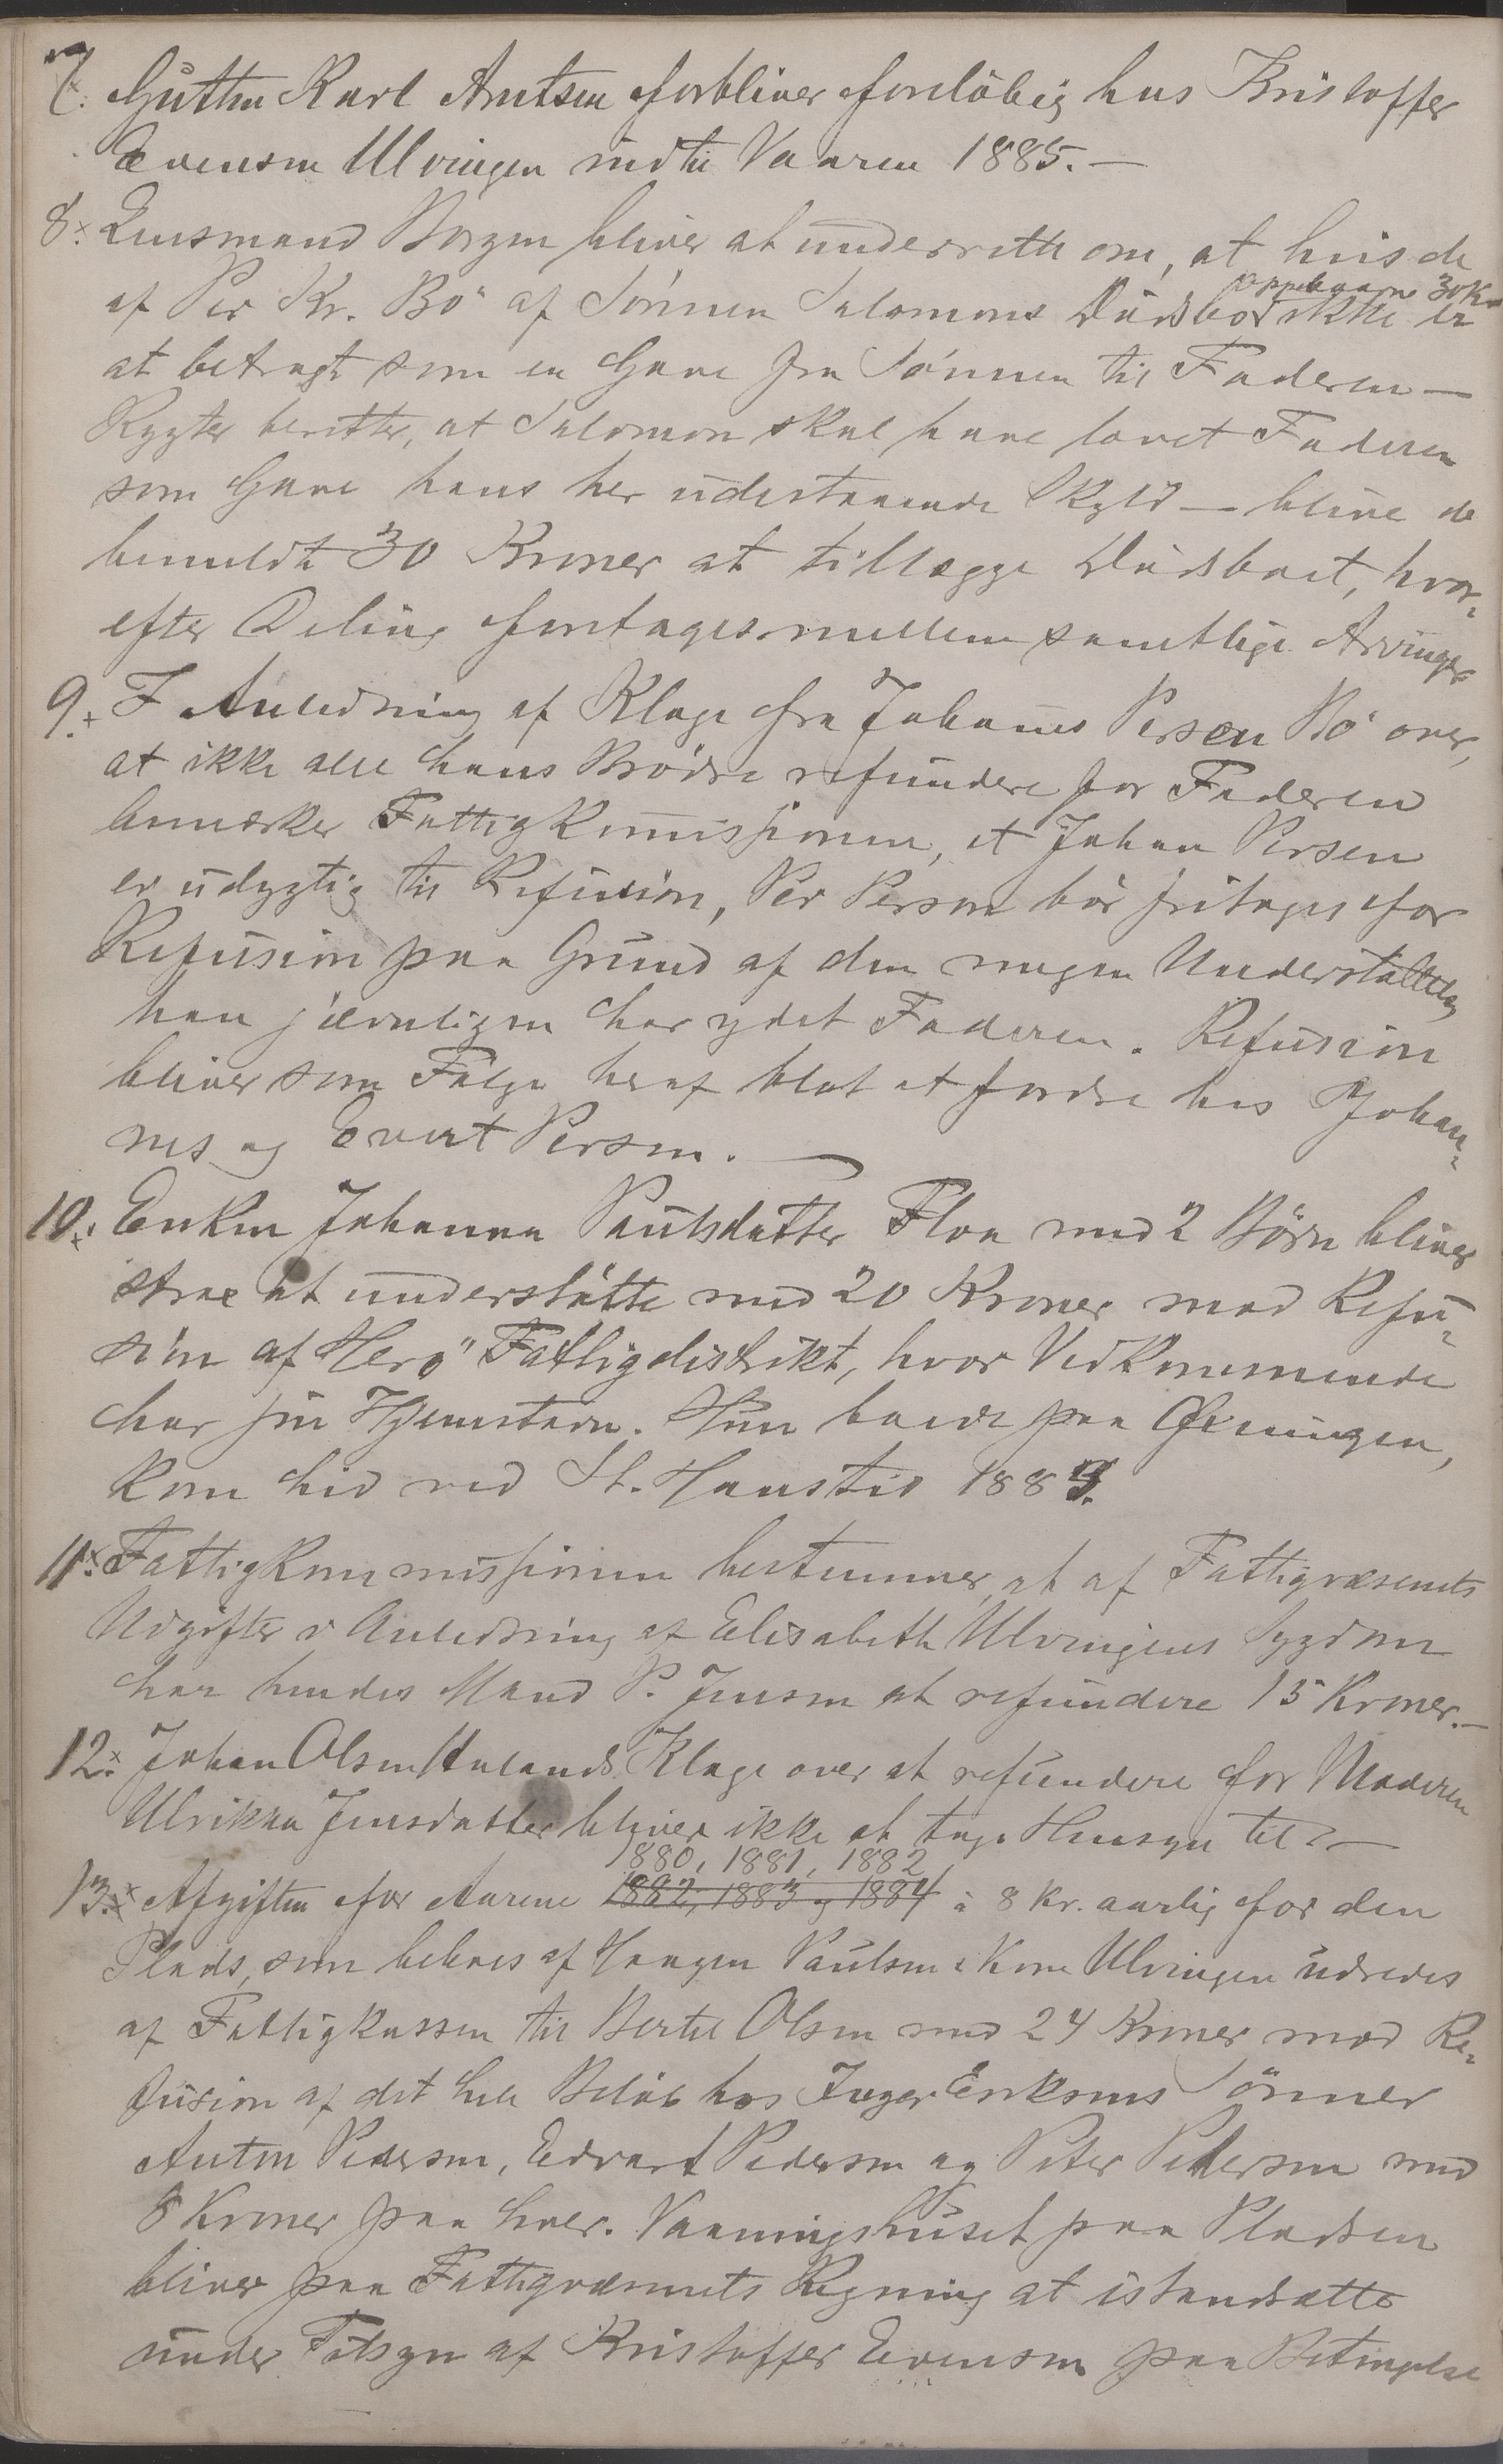 7. Gutten Karl Arntsen forbliver foreløbig hos Kristoffer
Evensen Ulvingen indtil Vaaren 1885. —
8. Lensmand Borgen bliver at underrette om, at hvis de
af Per Kr. Bö af Sönnen Salomons Dödsbo oppebaarne 30 Kr ikke er
at betragt som en Gave fra Sönnen til Faderen —
Rygter beretter, at Salomon skal have lovet Faderen
som Gave hans her udestaaende Skyld — blive de
bemeldte 30 Kroner at tillægge Dödsboet, hvor-
efter Deling foretages mellem samtlige Arvinger
9. I Anledning af Klage fra Johannes Persen Bö over,
at ikke alle hans Brödre refundere for Faderen
bemærker Fattigkommissionen, at Johan Persen
er udygtig til Refusion, Per Persen bör fritages for
Refusion paa Grund af den megen Understöttelse
han jævnligen har ydet Faderen. Refusion
bliver som Fölge heraf blot at fordre hos Johan-
nes og Evert Persen. —
10. Enken Johanna Paulsdatter Floa med 2 Börn bliver
strax at understötte med 20 Kroner mod Refu-
sion af Herö Fattigdistrikt, hvor Vedkommende
har sin Hjemstavn. Hun boede paa Gjeningen,
kom hid ved St. Hanstid 1883.
11. Fattigkommissionen bestemmer, at af Fattigvæsenets
Udgifter i Anledning af Elisabeth Ulvingens Sygdom
har hendes Mand P. Jensen at refundere 15 Kroner. —
12. Johan Olsen Hulands Klage over at refundere for Moderen
Ulrikka Jensdatter bliver ikke at tage Hensyn til —
13. Afgiften for Aarene 1882, 1883 og 1884 1880, 1881, 1882, à 8 Kr. aarlig for den
Plads, som beboes af Haagen Paulsen Ulvingen udredes
af Fattigkassen til Bertel Olsen med 24 Kroner mod Re-
fusion af det hele Belöb hos Inger Eriksens Sönner
Anton Pedersen, Edvart Pedersen og Peter Pedersen med
8 Kroner paa hver. Vaaningshuset paa Pladsen
bliver paa Fattigvæsenets Regning at istandsætte
under Tilsyn af Kristoffer Evensen paa Betingelse